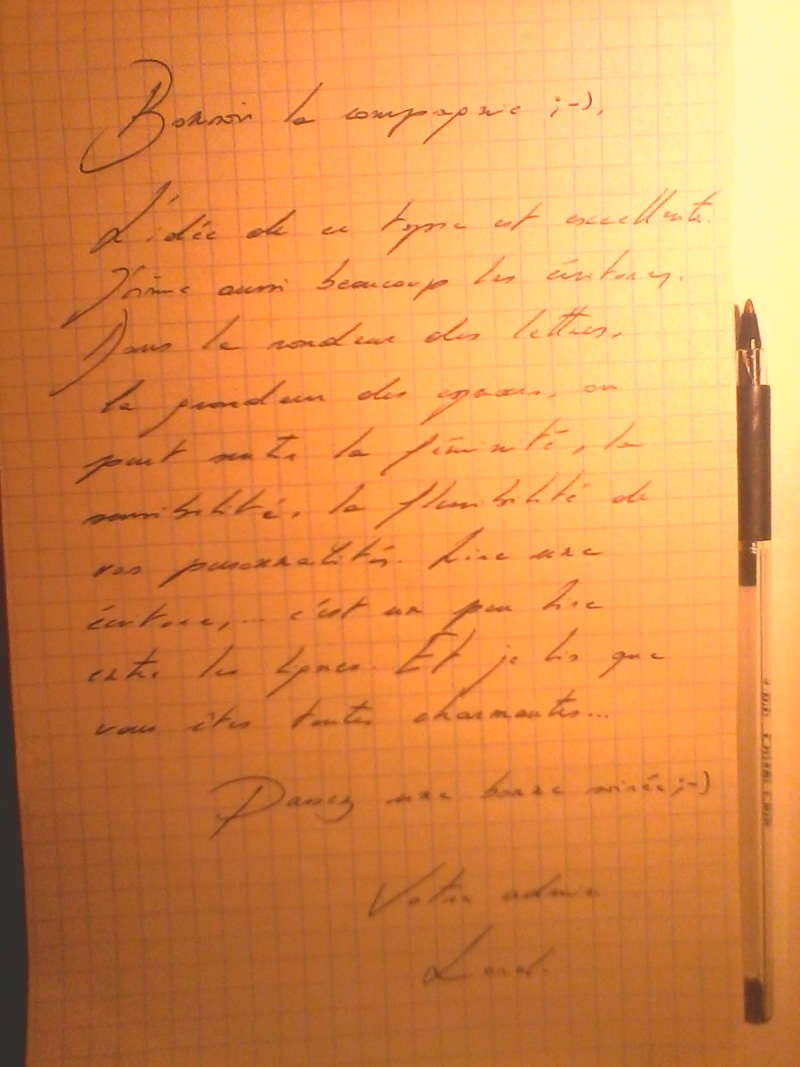 Bonsoir la compagnie ;-),
L'idée de ce type est excellente.
J'aime aussi beaucoup les écritures.
Dans la rondeur des lettres,
la grandeur des espaces, on
peut sentir la féminité, la
sensibilité, la flexibilité de
vos personnalités. Lire une
écriture,... c'est un peu lire
entre les lignes. Et je lis que
vous êtes toutes charmantes...
Passez une bonne soirée ;-)
Votre admin
Lord.